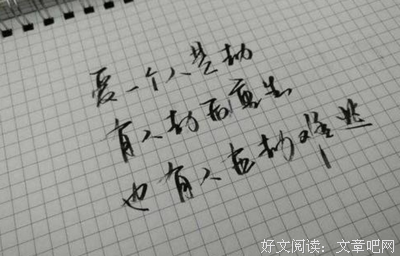 爱一个人是劫
有人劫后重生
也有人在劫难逃
好文阅读：文章吧网